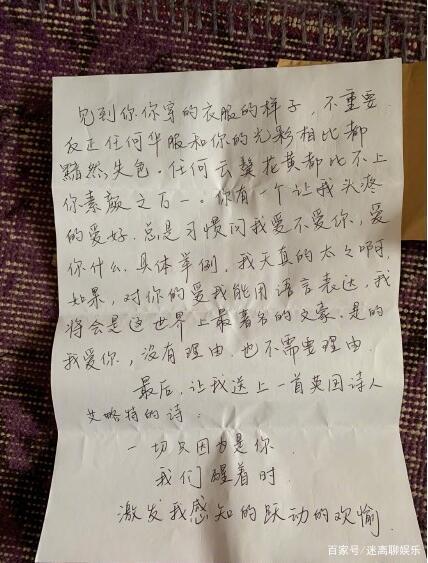 见到你.你穿的衣服的样子，不重要
反正任何华服和你的光彩相比都
黯然失色。任何云鬓花黄都比不上
你素颜之百一。你有一个让我头疼
的爱好.总是习惯问我爱不爱你，爱
你什么.具体举例，我天真的太太啊，
如果，对你的爱我能用语言表达，我
将会是这世界上最著名的文豪.是的
我爱你，没有理由.也不需要理由.
最后，让我送上一首英国诗人
艾略特的诗：
一切只因为是你.
我们醒着时.
激发我感知的跃动的欢愉.
百家号/迷离聊娱乐